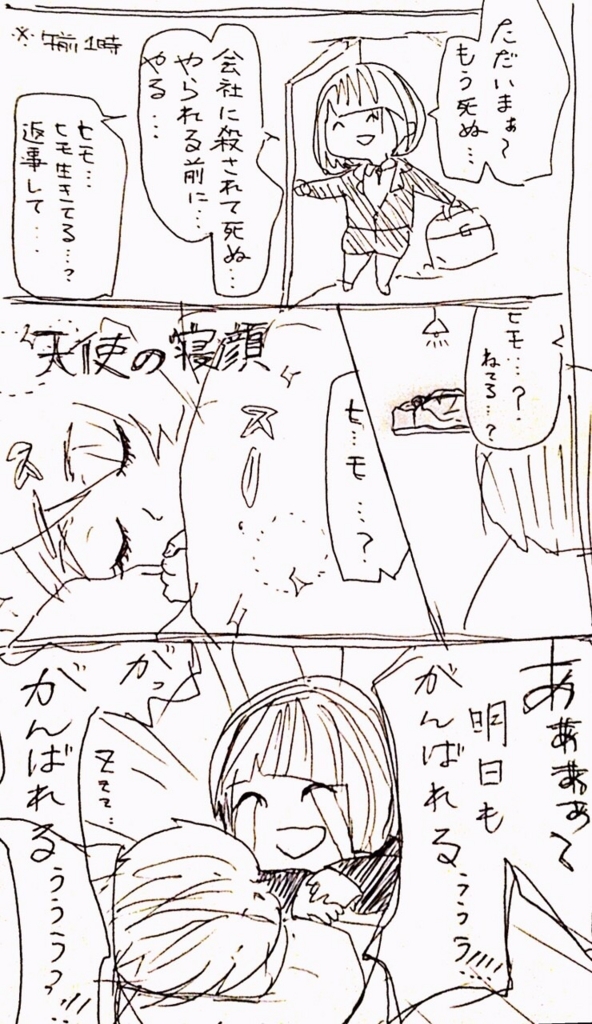 ただいまぁ〜
もう死ぬ…
※午前1時
会社に殺されて死ぬ…
やられる前に…
やる…
ヒモ…
ヒモ生きてる…?
返事して…
ヒモ…?
ねてる…?
ヒ…モ…?
スー
天使の寝顔
ス
ああああ〜
明日も
がんばれるぅぅぅ…!!!
がっ
zzz…
がんばれるぅぅぅぅっ…!!!